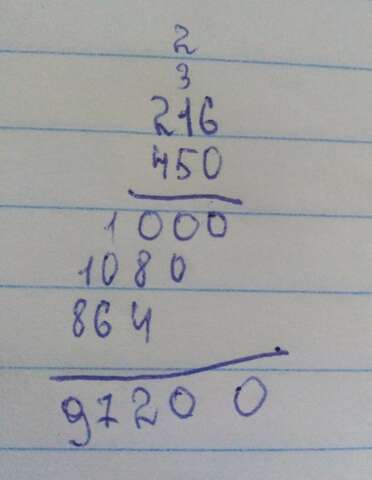 2
3
216
450
1 000
1080
864
97200